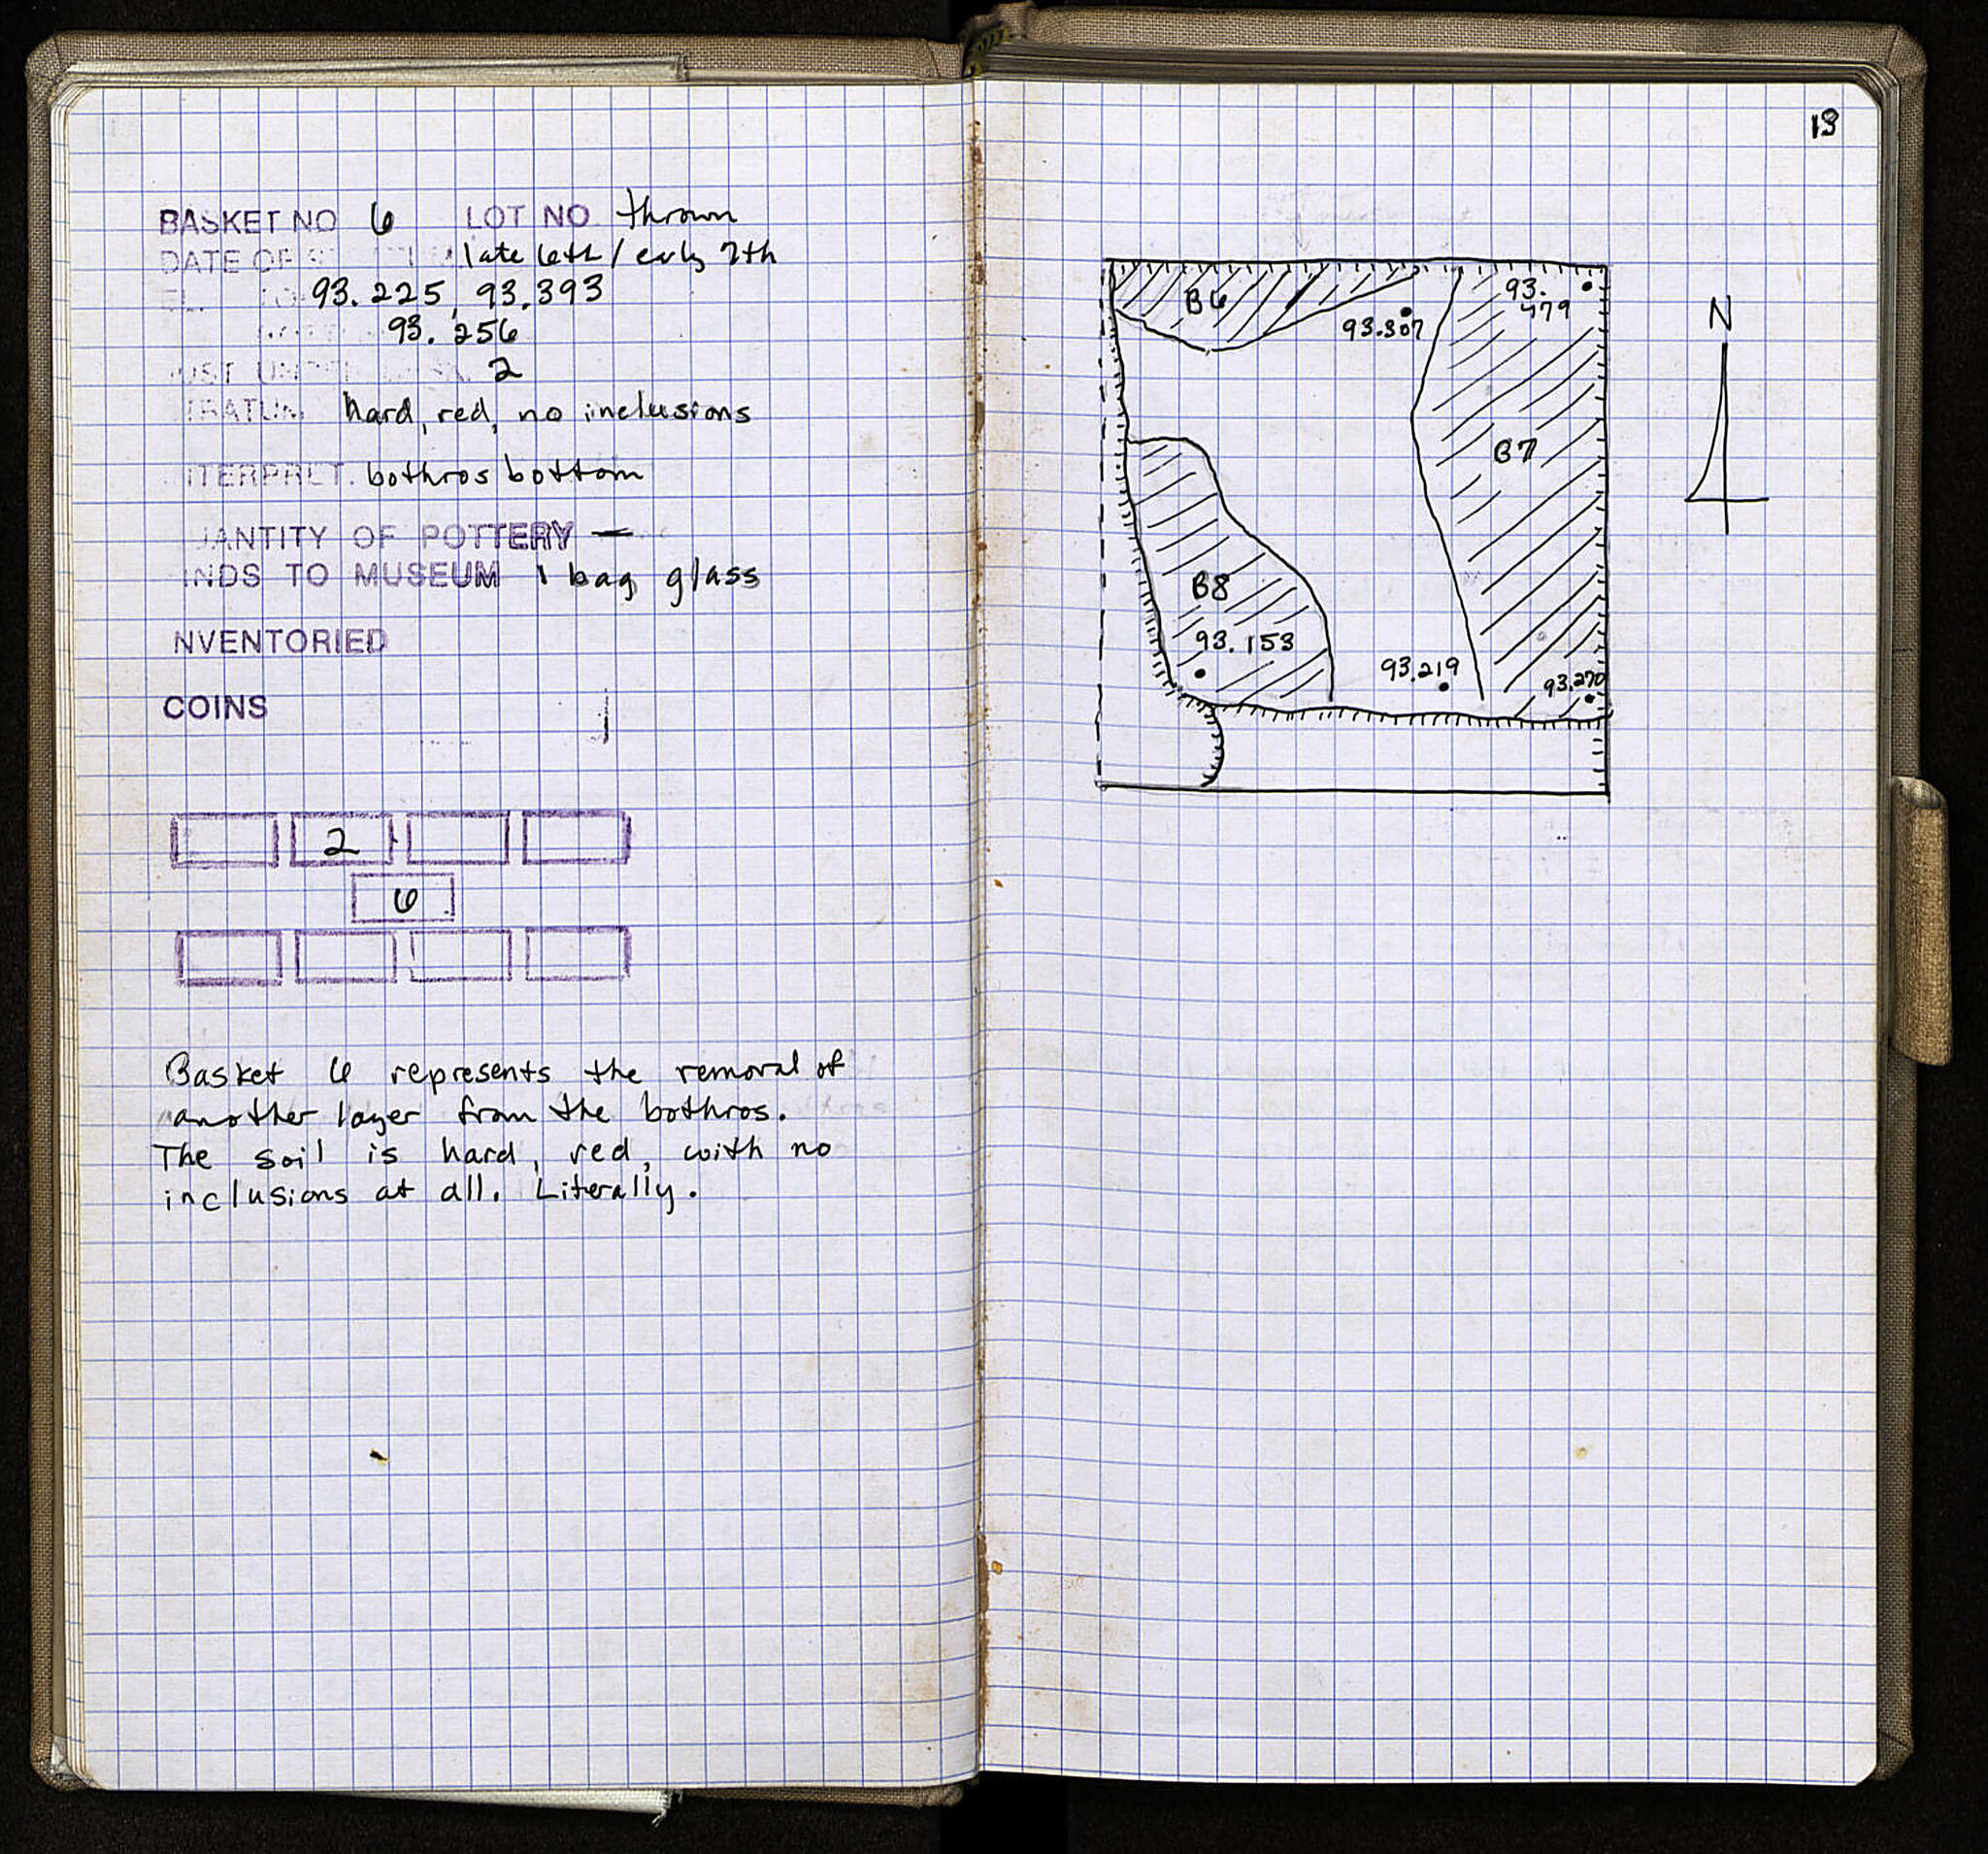 BASKET NO 6 LOT NO. thrown
DATE OF late 6th / early 7th
EL. 93.225, 93.393
93.256
UST UN 2
TRATUM hard, red, no inclusions
NTERPRET. bothros bottom
UANTITY OF POTTERY —
INDS TO MUSEUM 1 bag glass
NVENTORIED
COINS
2
6
Basket 6 represents the removal of
another layer from the bothros.
The soil is hard, red, with no
inclusions at all. Literally.
13
B6
93.307
93.
479
N
B7
B8
93.153
93.219
93.270